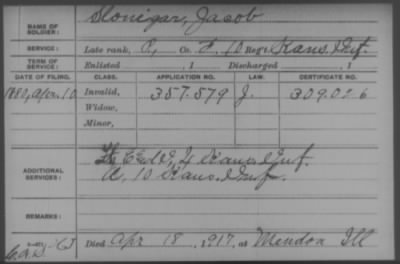 NAME OF SOLDIER: Slonigar, Jacob
SERVICE: Late rank, P, Co. F, 10 Reg't Kans. Inf.
TERM OF SERVICE: Enlisted , 1 Discharged , 1
DATE OF FILING. CLASS. APPLICATION NO. LAW. CERTIFICATE NO.
1880, Apr. 10 Invalid, 357.579 J. 309.026
Widow,
Minor,
ADDITIONAL SERVICES: 4 Kans. Inf.
A, 10 Kans. Inf.
REMARKS:
Died Apr 18, 1917, at Mendon Ill